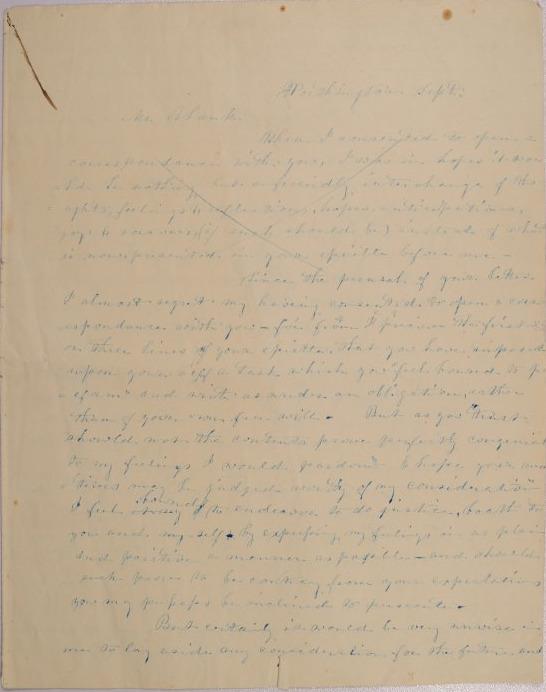 Washington Sept.
Mr. Shank.
When I consented to open a
correspondance with you, I was in hopes it wou
ld be nothing but a friendly interchange of tho
ughts, feelings & reflections, hopes, anticipations,
joys & sorrows (if such should be) instead of what
is now presented in your epistle before me –
Since the perusal of your letter
I almost regret my having consented to open a corr
espondance with you – for from I perceive the first
or three lines of your epistle, that you have imposed
upon your self a task which you feel bound to p
erform and write as under an obligation, rather
than of your own free will. But as you "trust
should not the contents prove perfectly congenial
to my feelings I would pardon" & hope your
may be judged worthy of my consideration
I feel bound to endeavor to do justice, boath to
you and my self by expressing my feelings in as plain
and positive a manner as possible – and should
such prove to be contrary from your expectations
you my perhaps be inclined to
But certainly it would be very unwise in
me to lay aside any consideration for the future, and